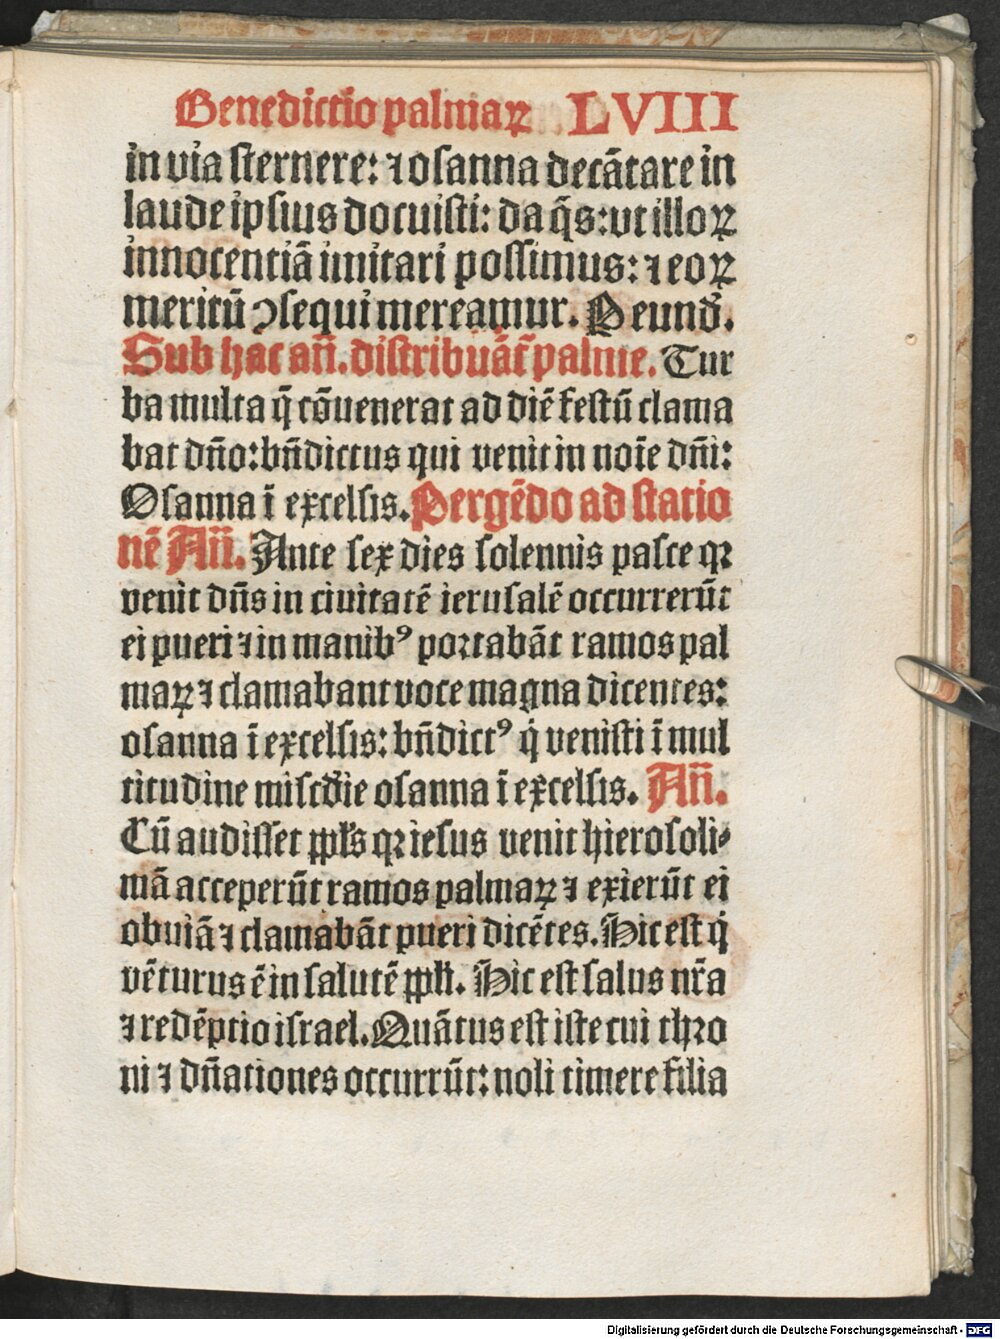 Benedictio palmaꝝ LVIII
in via sternere: ⁊ osanna decātare in
laude ipsius docuisti: da q̄s: vt illoꝝ
innocentiā imitari possimus: ⁊ eoꝝ
meritū ꝯsequi mereamur. P eund̄.
Sub hac an̄. distribuāt̄ palme. Tur
ba multa q̄ cōuenerat ad diē festū clama
bat dn̄o: bn̄dictus qui venit in noīe dn̄i:
Osanna ī excelsis. Pergēdo ad statio
nē An̄. Ante sex dies solennis pasce qꝛ
venit dn̄s in ciuitatē ierusalē occurrerūt
ei pueri ⁊ in manibꝰ portabāt ramos pal
maꝝ ⁊ clamabant voce magna dicentes:
osanna ī excelsis: bn̄dictꝰ q̇ venisti ī mul
titudine misc̄die osanna ī excelsis. An̄.
Cū audisset pp̄ls qꝛ iesus venit hierosoli⸗
mā acceperūt ramos palmaꝝ ⁊ exierūt ei
obuiā ⁊ clamabāt pueri dicētes. Hic est q̇
vēturus ē in salutē pp̄li. Hic est salus nr̄a
⁊ redēptio israel. Quātus est iste cui thꝛo
ni ⁊ dn̄ationes occurrūt: noli timere filia
Digitalisierung gefördert durch die Deutsche Forschungsgemeinschaft - DFG